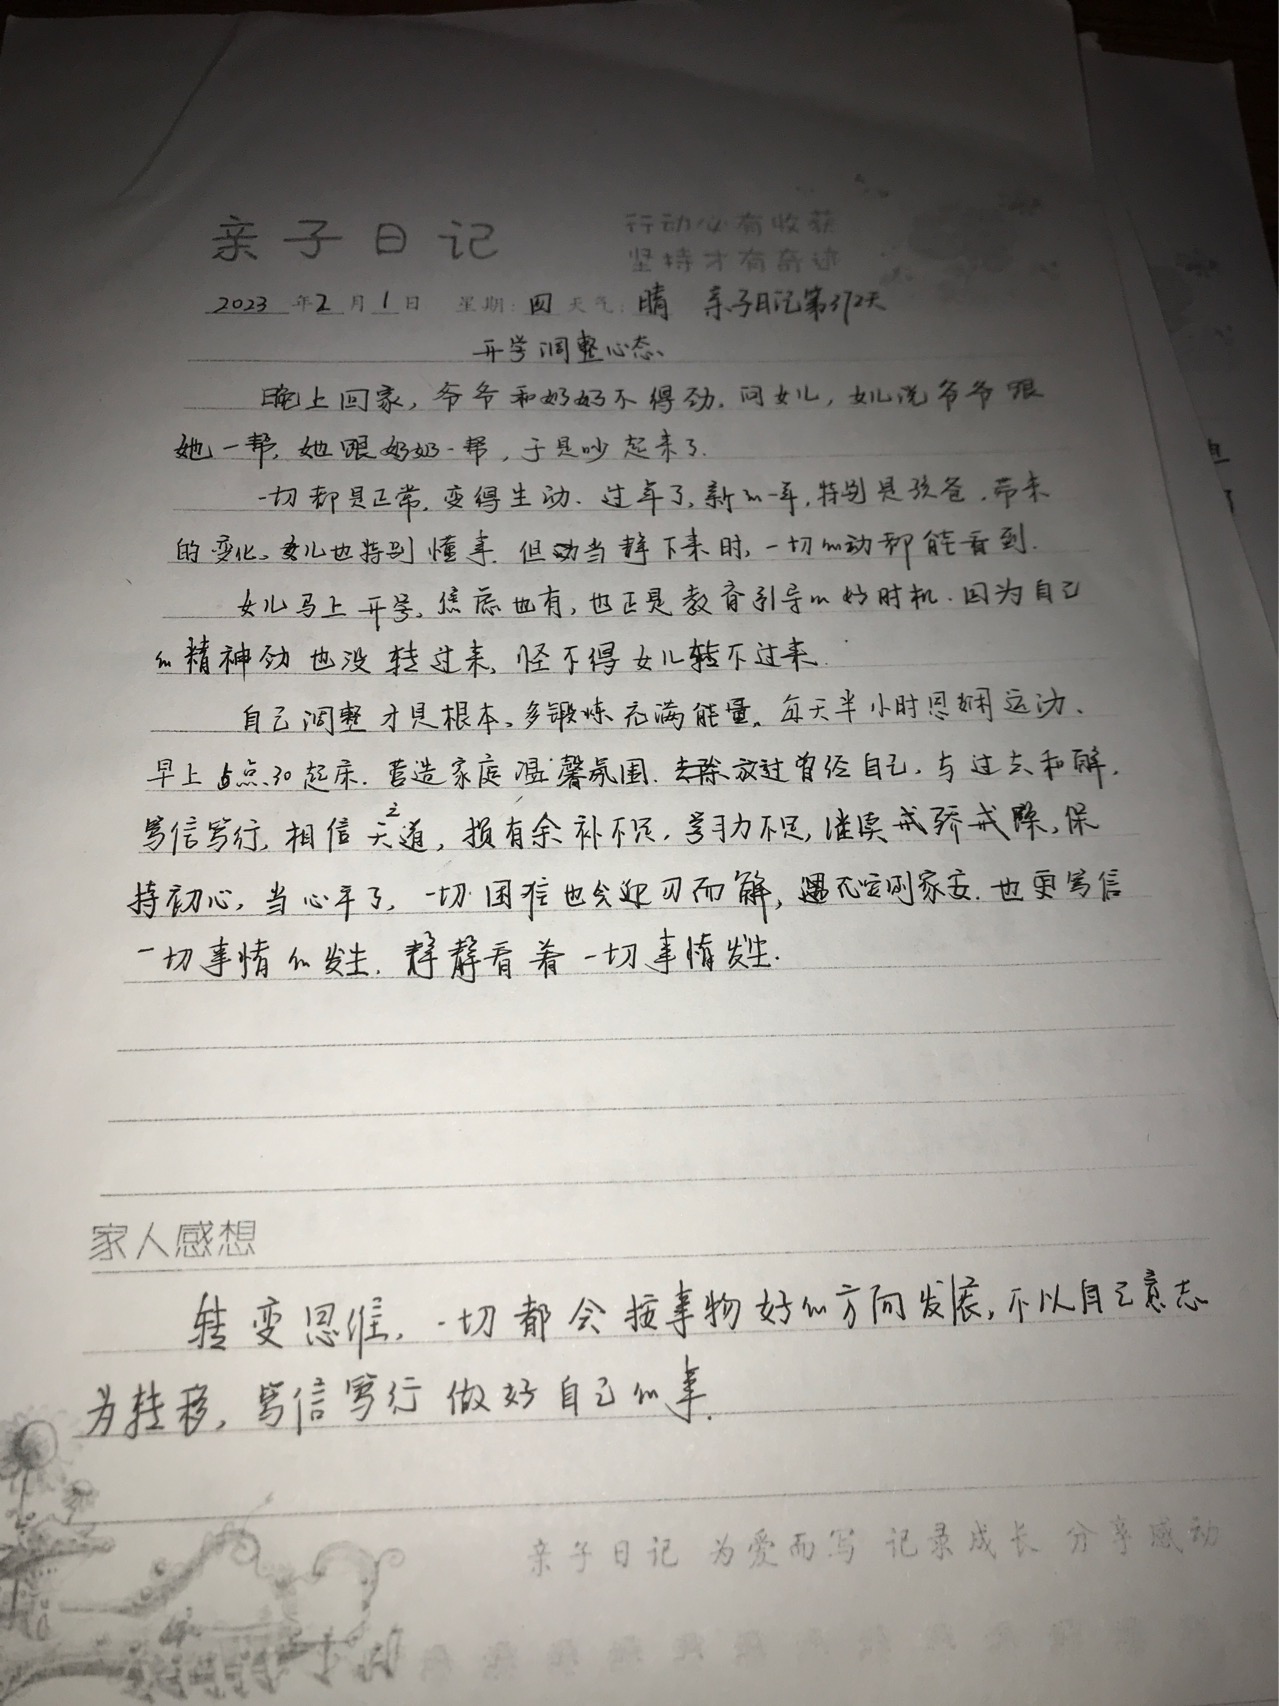 亲子日记
行动必有收获
坚持才有奇迹
2023年2月1日 星期:四 天气:晴 亲子日记第372天
开学调整心态、
晚上回家，爷爷和奶奶不得劲.问女儿，女儿说爷爷跟
她一帮,她跟奶奶一帮，于是吵起来了.
一切都是正常,变得生动.过年了,新的一年,特别是孩爸,带来
的变化、女儿也特别懂事.但当静下来时,一切的动都能看到.
女儿马上开学,焦虑也有,也正是教育引导的好时机.因为自己
的精神劲也没转过来,怪不得女儿转不过来.
自己调整才是根本、多锻炼充满能量、每天半小时 运动、
早上5点30起床.营造家庭温馨氛围.放过曾经自己,与过去和解.
笃信笃行,相信天之道,损有余补不足.学习力不足,继续戒骄戒躁,保
持初心,当心平了,一切困难也会迎刃而解, 家安.也更笃信
一切事情的发生.静静看着一切事情发生.
家人感想
转变思维,一切都会按事物好的方向发展,不以自己意志
为转移,笃信笃行做好自己的事.
亲子日记 为爱而写 记录成长 分享感动